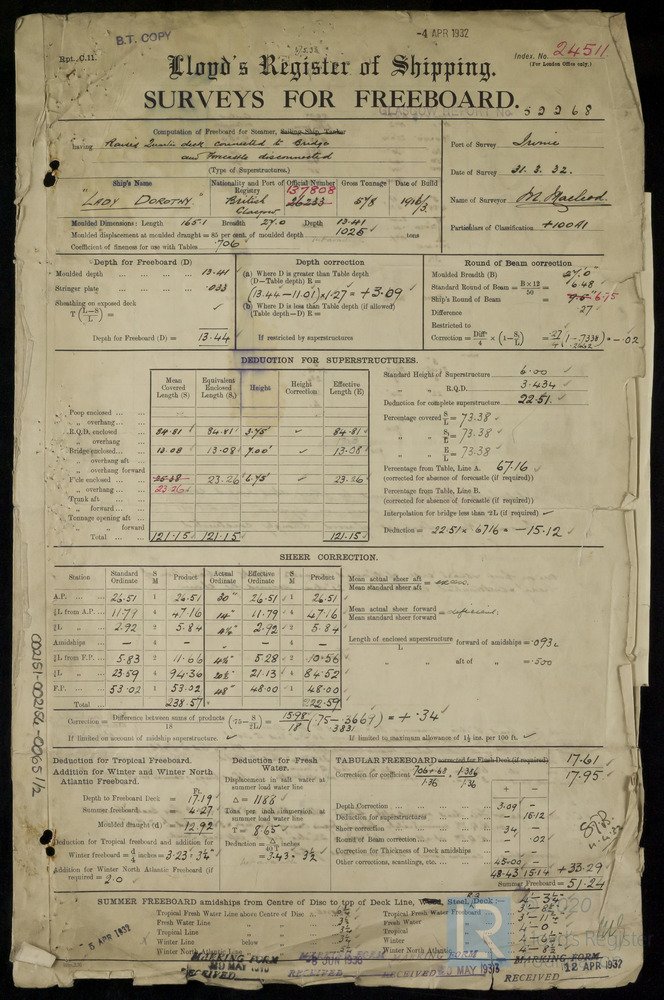 B.T. COPY
-4 APR 1932
Rpt. C.11.
Index. No. 24511
(For London Office only.)
Lloyd's Register of Shipping.
SURVEYS FOR FREEBOARD.
GLASGOW REPORT No 52268
Computation of Freeboard for Steamer, Sailing Ship, Tanker
having Raised Quarter deck connected to Bridge
and Forecastle disconnected
(Type of Superstructures.)
Port of Survey Irvine
Date of Survey 31.3.32.
Name of Surveyor M. Macleod.
Particulars of Classification +100A1
Ship's Name
Nationality and Port of Registry
Official Number
Gross Tonnage
Date of Build
"LADY DOROTHY"
British
Glasgow
137808
26233
578
1916/3
Moulded Dimensions: Length 165.1 Breadth 27.0 Depth 13.41
Moulded displacement at moulded draught = 85 per cent. of moulded depth 1025 tons
Coefficient of fineness for use with Tables .706
Depth for Freeboard (D)
Moulded depth 13.41
Stringer plate .033
Sheathing on exposed deck
T (L-S/L) =
Depth for Freeboard (D) = 13.44
Depth correction
(a) Where D is greater than Table depth
(D-Table depth) R =
(13.44-11.01) × 1.27 = +3.09
(b) Where D is less than Table depth (if allowed)
(Table depth-D) R =
If restricted by superstructures
Round of Beam correction
Moulded Breadth (B) 27.0
Standard Round of Beam = B×12/50 = 6.48
Ship's Round of Beam = 6.75
Difference .27
Restricted to
Correction = Diff/4 × (1-S/L) = .27/4 (1-.7338) = -.02
.2662
DEDUCTION FOR SUPERSTRUCTURES.
Mean Covered Length (S)
Equivalent Enclosed Length (S₁)
Height
Height Correction
Effective Length (E)
Poop enclosed
„ overhang
R.Q.D. enclosed 84.81 84.81 3.75' 84.81
„ overhang
Bridge enclosed 13.08 13.08 7.00' 13.08
„ overhang aft
„ overhang forward
F'cle enclosed 23.26 6.75 23.26
„ overhang 23.26
Trunk aft
„ forward
Tonnage opening aft
„ „ forward
Total 121.15 121.15 121.15
Standard Height of Superstructure 6.00
„ „ R.Q.D. 3.434
Deduction for complete superstructure 22.51
Percentage covered S/L = 73.38
„ S₁/L = 73.38
„ E/L = 73.38
Percentage from Table, Line A. 67.16
(corrected for absence of forecastle (if required))
Percentage from Table, Line B.
(corrected for absence of forecastle (if required))
Interpolation for bridge less than ·2L (if required)
Deduction = 22.51 × .6716 = -15.12
SHEER CORRECTION.
Station
Standard Ordinate
S M
Product
Actual Ordinate
Effective Ordinate
S M
Product
A.P. 26.51 1 26.51 30" 26.51 1 26.51
⅙L from A.P. 11.79 4 47.16 14" 11.79 4 47.16
⅓L „ 2.92 2 5.84 2.92 2 5.84
Amidships - 4 - - - 4 -
⅓L from F.P. 5.83 2 11.66 5.28 2 10.56
⅙L „ 23.59 4 94.36 21.13 4 84.52
F.P. 53.02 1 53.02 48" 48.00 1 48.00
Total 238.57 222.59
Mean actual sheer aft / Mean standard sheer aft = excess.
Mean actual sheer forward / Mean standard sheer forward = deficient.
Length of enclosed superstructure / L forward of amidships = .093L
„ aft of „ = .500
Correction = Difference between sums of products / 18 (·75-S/2L) = 15.98/18 (.75-.3669) = +.34
.3831
If limited on account of midship superstructure.
If limited to maximum allowance of 1½ ins. per 100 ft.
Deduction for Tropical Freeboard.
Addition for Winter and Winter North Atlantic Freeboard.
Ft.
Depth to Freeboard Deck = 17.19
Summer freeboard = 4.27
Moulded draught (d) = 12.92
Deduction for Tropical freeboard and addition for
Winter freeboard = d/4 inches = 3.23 = 3¼"
Addition for Winter North Atlantic Freeboard (if
required) = 2.0
Deduction for Fresh Water.
Displacement in salt water at
summer load water line
Δ = 1188
Tons per inch immersion at
summer load water line
T = 8.65
Deduction = Δ/40T inches
= 3.43 = 3½
TABULAR FREEBOARD corrected for Flush Deck (if required) 17.61
Correction for coefficient .706+.68/1.36 1.386/1.36 17.95
+ -
Depth Correction 3.09 -
Deduction for superstructures - 15.12
Sheer correction .34 -
Round of Beam correction - .02
Correction for Thickness of Deck amidships
Other corrections, scantlings, etc. 45.00 -
48.43 15.14 +33.29
Summer Freeboard = 51.24
SUMMER FREEBOARD amidships from Centre of Disc to top of Deck Line, Wood, Steel, Deck :-
Tropical Fresh Water Line above Centre of Disc
Fresh Water Line „
Tropical Line „
Winter Line below „
Winter North Atlantic Line „
Tropical Fresh Water Freeboard
Fresh Water „
Tropical „
Winter „
Winter North Atlantic „
002151-002152-0065 1/2
5 APR 1932
MARKING FORM
RECEIVED
MARKING FORM
RECEIVED
MARKING FORM
RECEIVED
MARKING FORM
RECEIVED 12 APR 1932